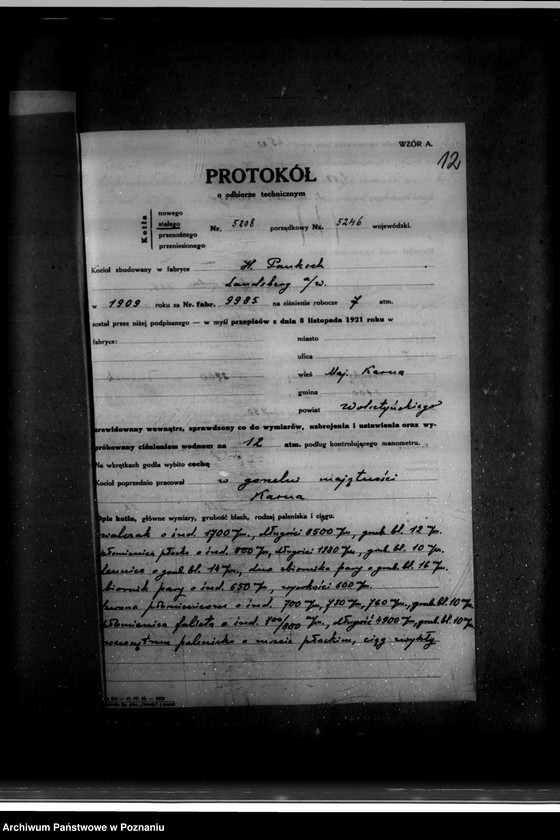 WZÓR A.
12
PROTOKÓŁ
o odbiorze technicznym
Kotła
nowego
stałego
przenośnego
przeniesionego
Nr. 5208 porządkowy Nr. 5246 wojewódzki.
Kocioł zbudowany w fabryce H. Pauksch
Landsberg a/w.
w 1909 roku za Nr. fabr. 9985 na ciśnienie robocze 7 atm.
został przez niżej podpisanego — w myśl przepisów z dnia 8 listopada 1921 roku w
fabryce:
miasto
ulica
wieś Maj. Karna
gmina
powiat Wolsztyńskiego
zrewidowany wewnątrz, sprawdzony co do wymiarów, uzbrojenia i ustawienia oraz wy-
próbowany ciśnieniem wodnem na 12 atm. podług kontrolującego manometru.
Na wkrętkach godła wybito cechę
Kocioł poprzednio pracował w gorzelni majętności
Karna
Opis kotła, główne wymiary, grubość blach, rodzaj paleniska i ciągu:
walczak o śred. 1700 m/m, długości 8500 m/m, grub. bl. 12 m/m.
płomienica płaska o śred. 800 m/m, długości 1880 m/m, grub. bl. 10 m/m.
dennice o grub. bl. 14 m/m., dno zbiornika pary o grub. bl. 16 m/m.
zbiornik pary o śred. 650 m/m, wysokości 600 m/m.
płomienicowe o śred. 700 m/m, 730 m/m, 760 m/m, grub. bl. 10 m/m
płomienica falista o śred. 800 m/m., długość 4200 m/m, grub. bl. 10 m/m
wewnętrzne palenisko o ruszcie płaskim, ciąg zwykły